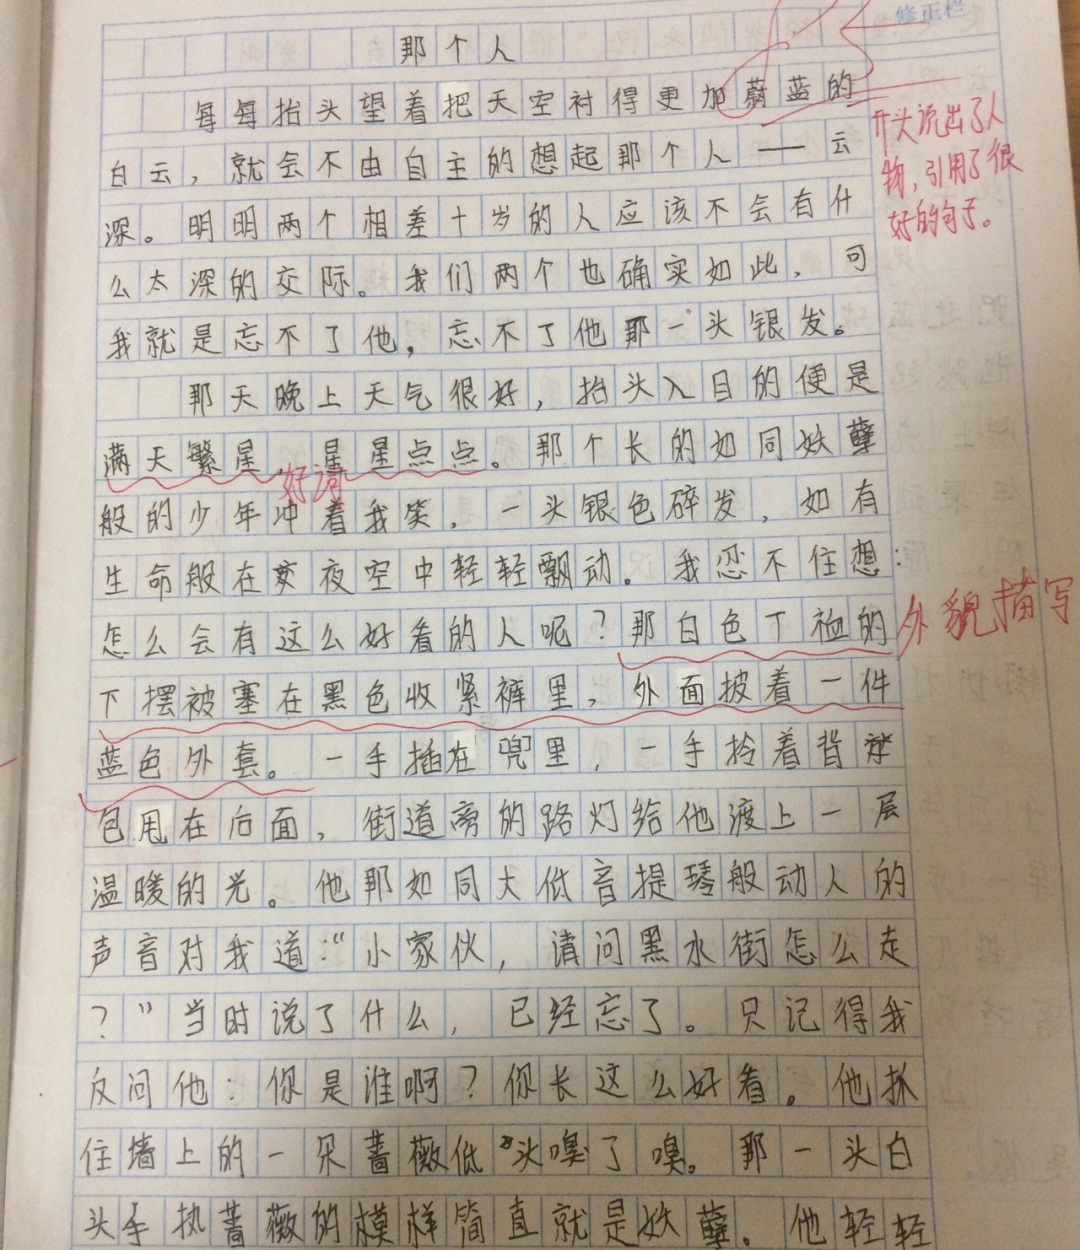 修正栏
那个人
每每抬头望着把天空衬得更加蔚蓝的
白云，就会不由自主的想起那个人——云
深。明明两个相差十岁的人应该不会有什
么太深的交际。我们两个也确实如此，可
我就是忘不了他，忘不了他那一头银发。
开头说出了人
物，引用了很
好的句子。
那天晚上天气很好，抬头入目的便是
满天繁星，星星点点。那个长的如同妖孽
好词
般的少年冲着我笑，一头银色碎发，如有
生命般在夜空中轻轻飘动。我忍不住想：
怎么会有这么好看的人呢？那白色T裇的
外貌描写
下摆被塞在黑色收紧裤里，外面披着一件
蓝色外套。一手插在兜里，一手拎着背
包甩在后面，街道旁的路灯给他渡上一层
温暖的光。他那如同大低音提琴般动人的
声音对我道：“小家伙，请问黑水街怎么走
？”当时说了什么，已经忘了。只记得我
反问他：你是谁啊？你长这么好看。他抓
住墙上的一朵蔷薇低头嗅了嗅。那一头白
头手执蔷薇的模样简直就是妖孽。他轻轻